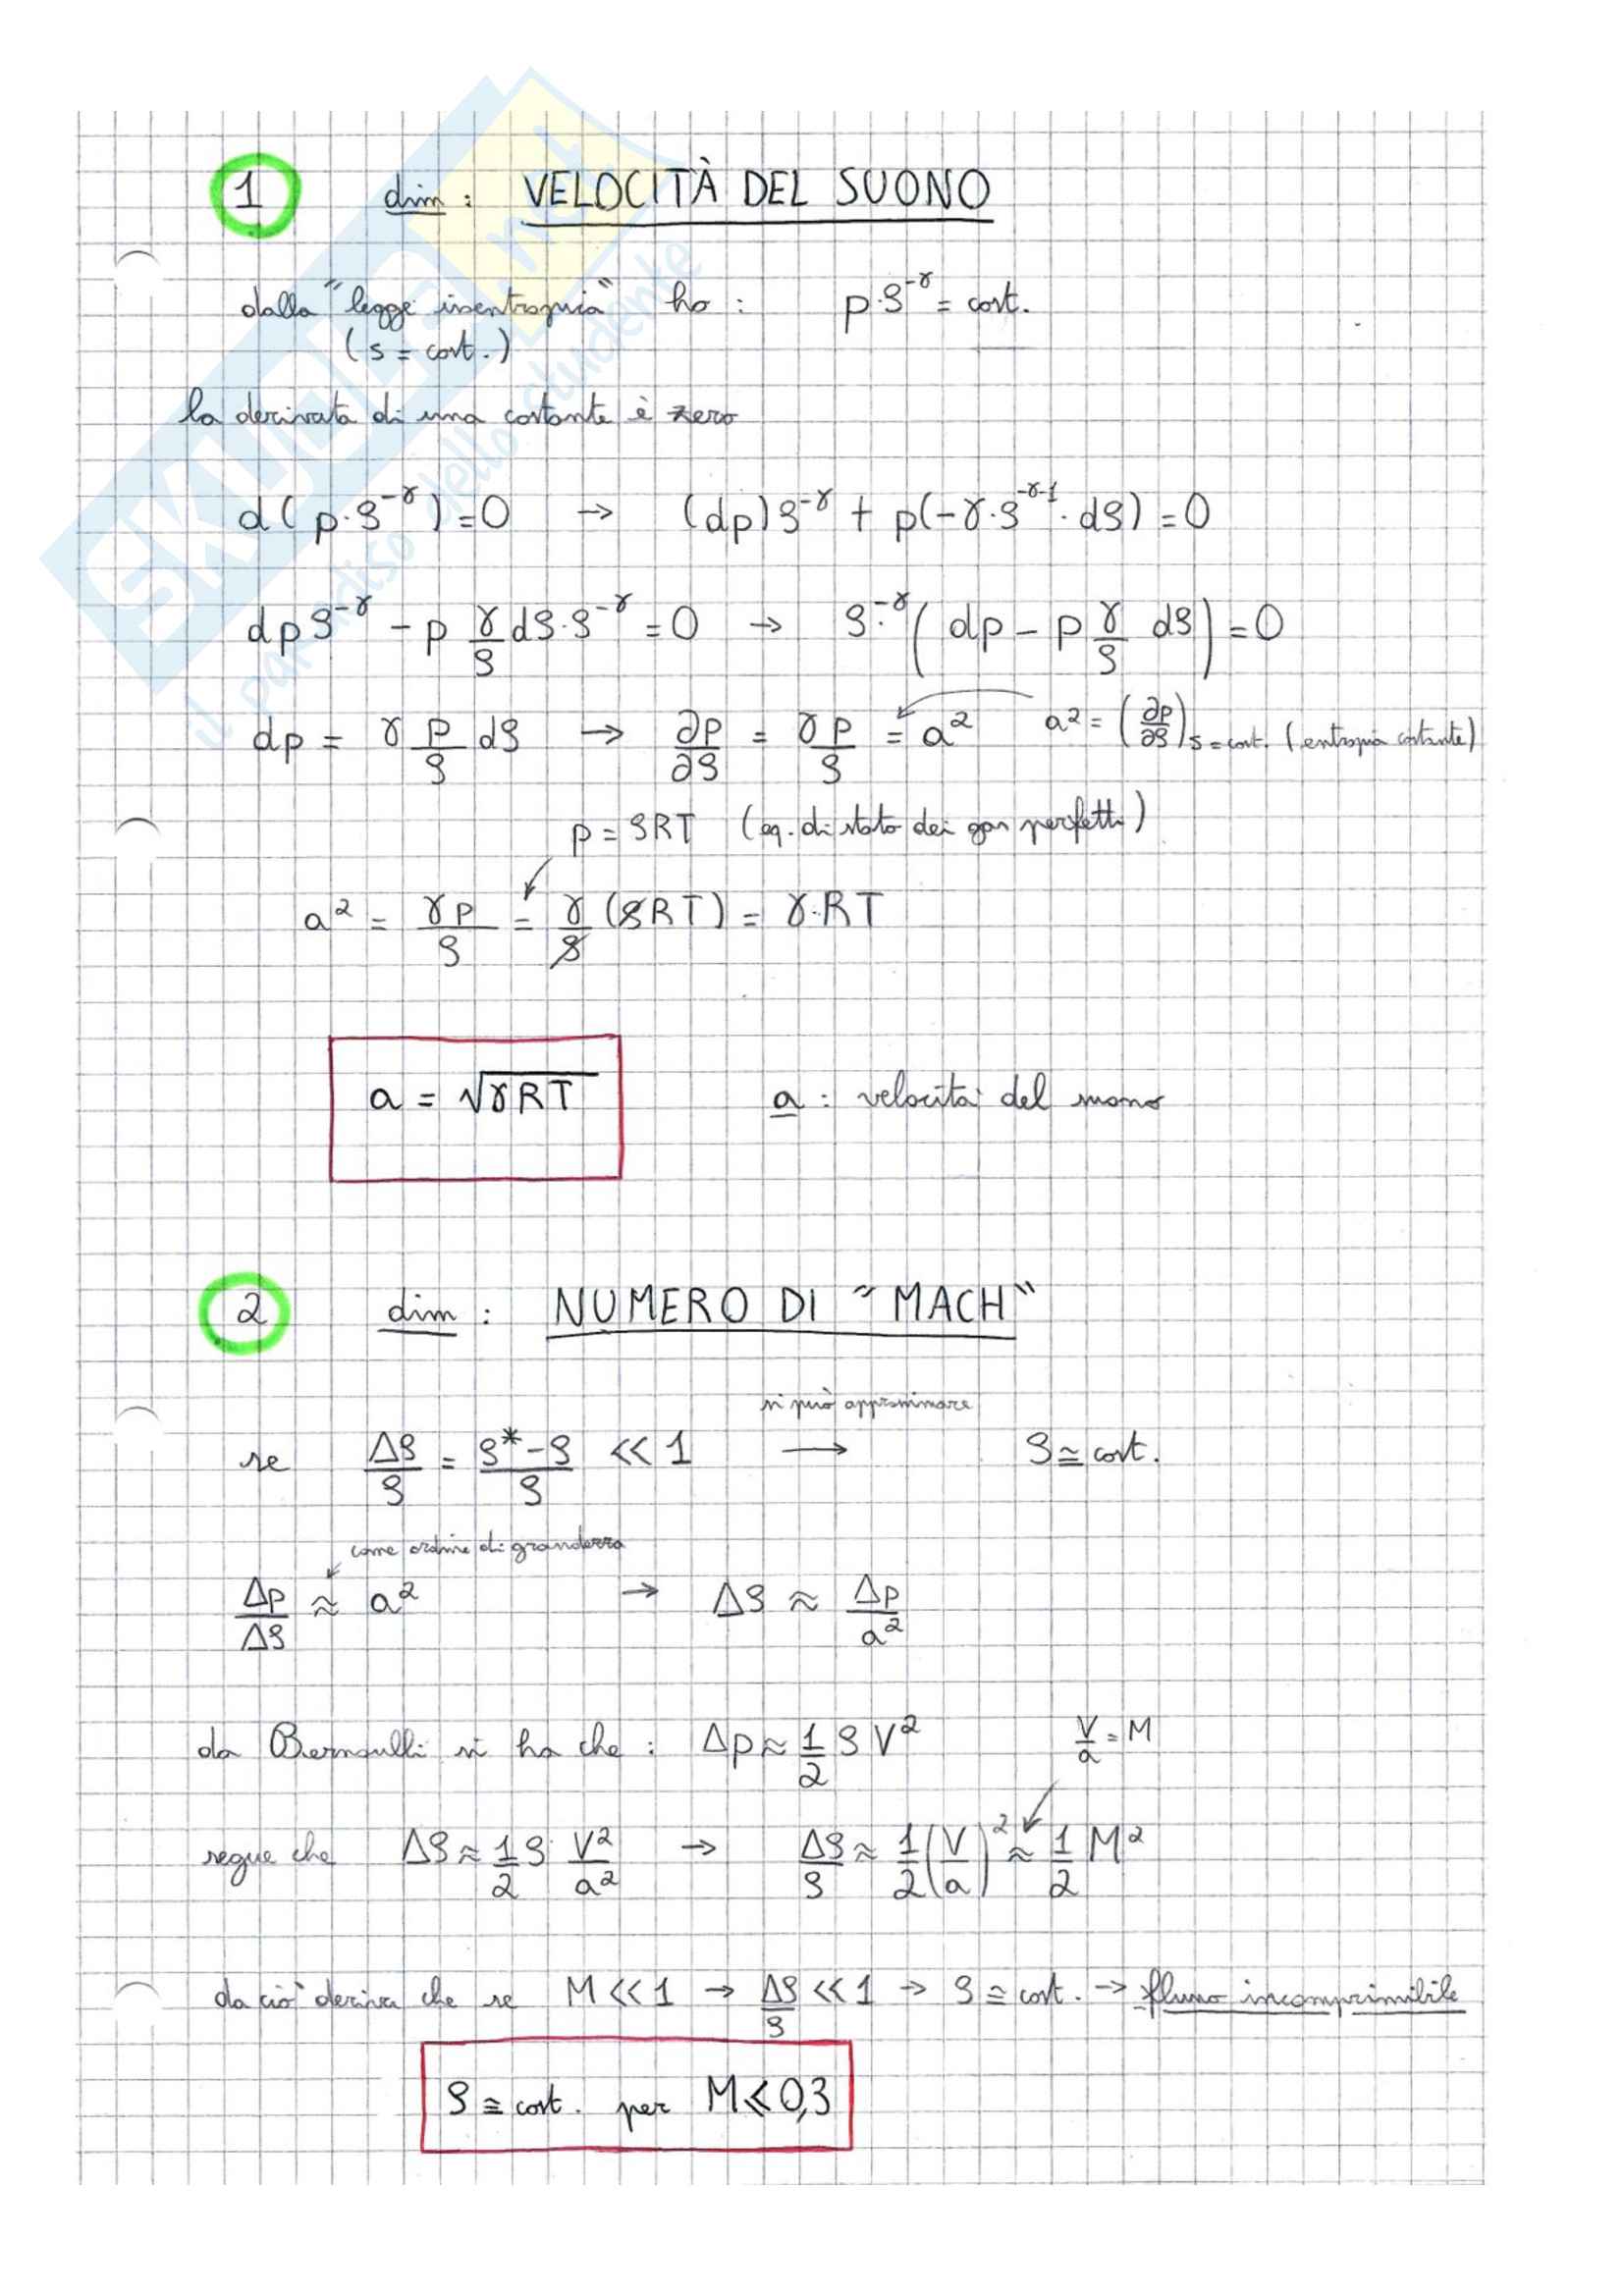 1 dim: VELOCITÀ DEL SUONO
dalla "legge isentropia" ho: p·ρ^-γ = cost.
(s = cost.)
la derivata di una costante è zero
d(p·ρ^-γ) = 0 → (dp)ρ^-γ + p(-γ·ρ^-γ-1·dρ) = 0
dpρ^-γ - p γ/ρ dρ·ρ^-γ = 0 → ρ^-γ (dp - p γ/ρ dρ) = 0
dp = γ p/ρ dρ → ∂p/∂ρ = γp/ρ = a² a² = (∂p/∂ρ)s=cost. (entropia costante)
p = ρRT (eq. di stato dei gas perfetti)
a² = γp/ρ = γ/ρ (ρRT) = γ·RT
a = √γRT a: velocità del suono
2 dim: NUMERO DI "MACH"
si può approssimare
se Δρ/ρ = ρ*-ρ/ρ << 1 → ρ ≅ cost.
come ordine di grandezza
Δp/Δρ ≈ a² → Δρ ≈ Δp/a²
da Bernoulli si ha che: Δp ≈ 1/2 ρV² V/a = M
segue che Δρ ≈ 1/2 ρ V²/a² → Δρ/ρ ≈ 1/2 (V/a)² ≈ 1/2 M²
da ciò deriva che se M << 1 → Δρ/ρ << 1 → ρ ≅ cost. → flusso incomprimibile
ρ ≅ cost. per M ⩽ 0,3
SKUOLA.net
il paradiso dello studente